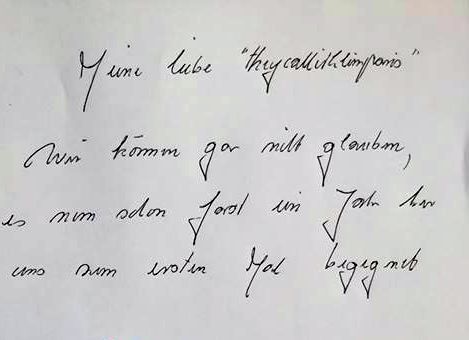 Meine liebe "theycallitkleinparis"
Wir können gar nicht glauben,
es nun schon fast ein Jahr her
uns zum ersten Mal begegnet